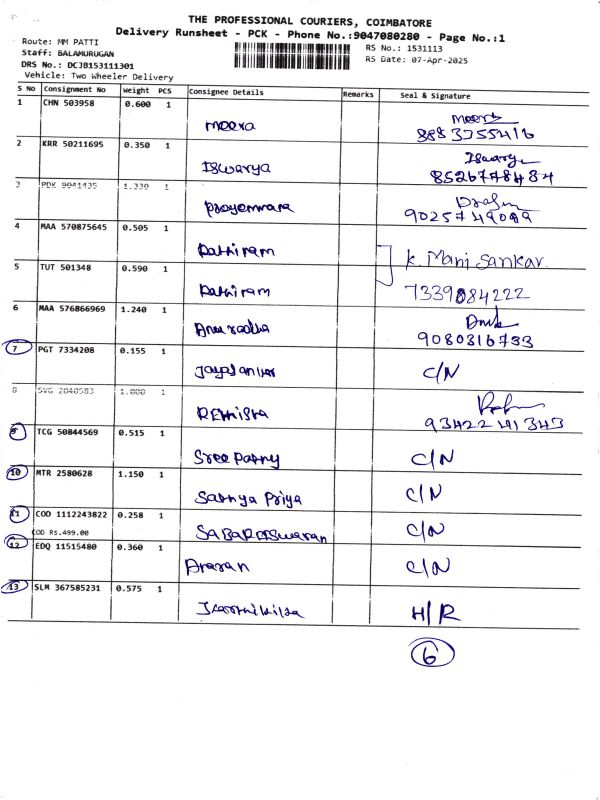 THE PROFESSIONAL COURIERS, COIMBATORE
Delivery Runsheet - PCK - Phone No.:9047080280 - Page No.:1
Route: MM PATTI
RS No.: 1531113
Staff: BALAMURUGAN
RS Date: 07-Apr-2025
DRS No.: DCJB153111301
Vehicle: Two Wheeler Delivery
S No Consignment No Weight PCS Consignee Details Remarks Seal & Signature
1 CHN 503958 0.600 1 Meera Meera
8883755416
2 KRR 50211695 0.350 1 Iswarya Iswarya
8526778484
3 PDK 9041435 1.330 1
9025749089
4 MAA 570875645 0.505 1 Pathiram K. Mani Sankar
5 TUT 501348 0.590 1 Pathiram 7339084222
6 MAA 576866969 1.240 1 Anuradha
9080316733
7 PGT 7334208 0.155 1 C/N
8 SVG 2040583 1.000 1
9342241343
9 TCG 50844569 0.515 1 Sree Pathy C/N
10 MTR 2580628 1.150 1 Sathya Priya C/N
11 COD 1112243822 0.258 1 C/N
COD Rs.499.00
12 EDQ 11515480 0.360 1 C/N
13 SLM 367585231 0.575 1 H/R
6